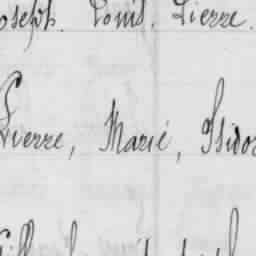 oseph. Louis. Pierre.
Pierre, Marie, Isidor